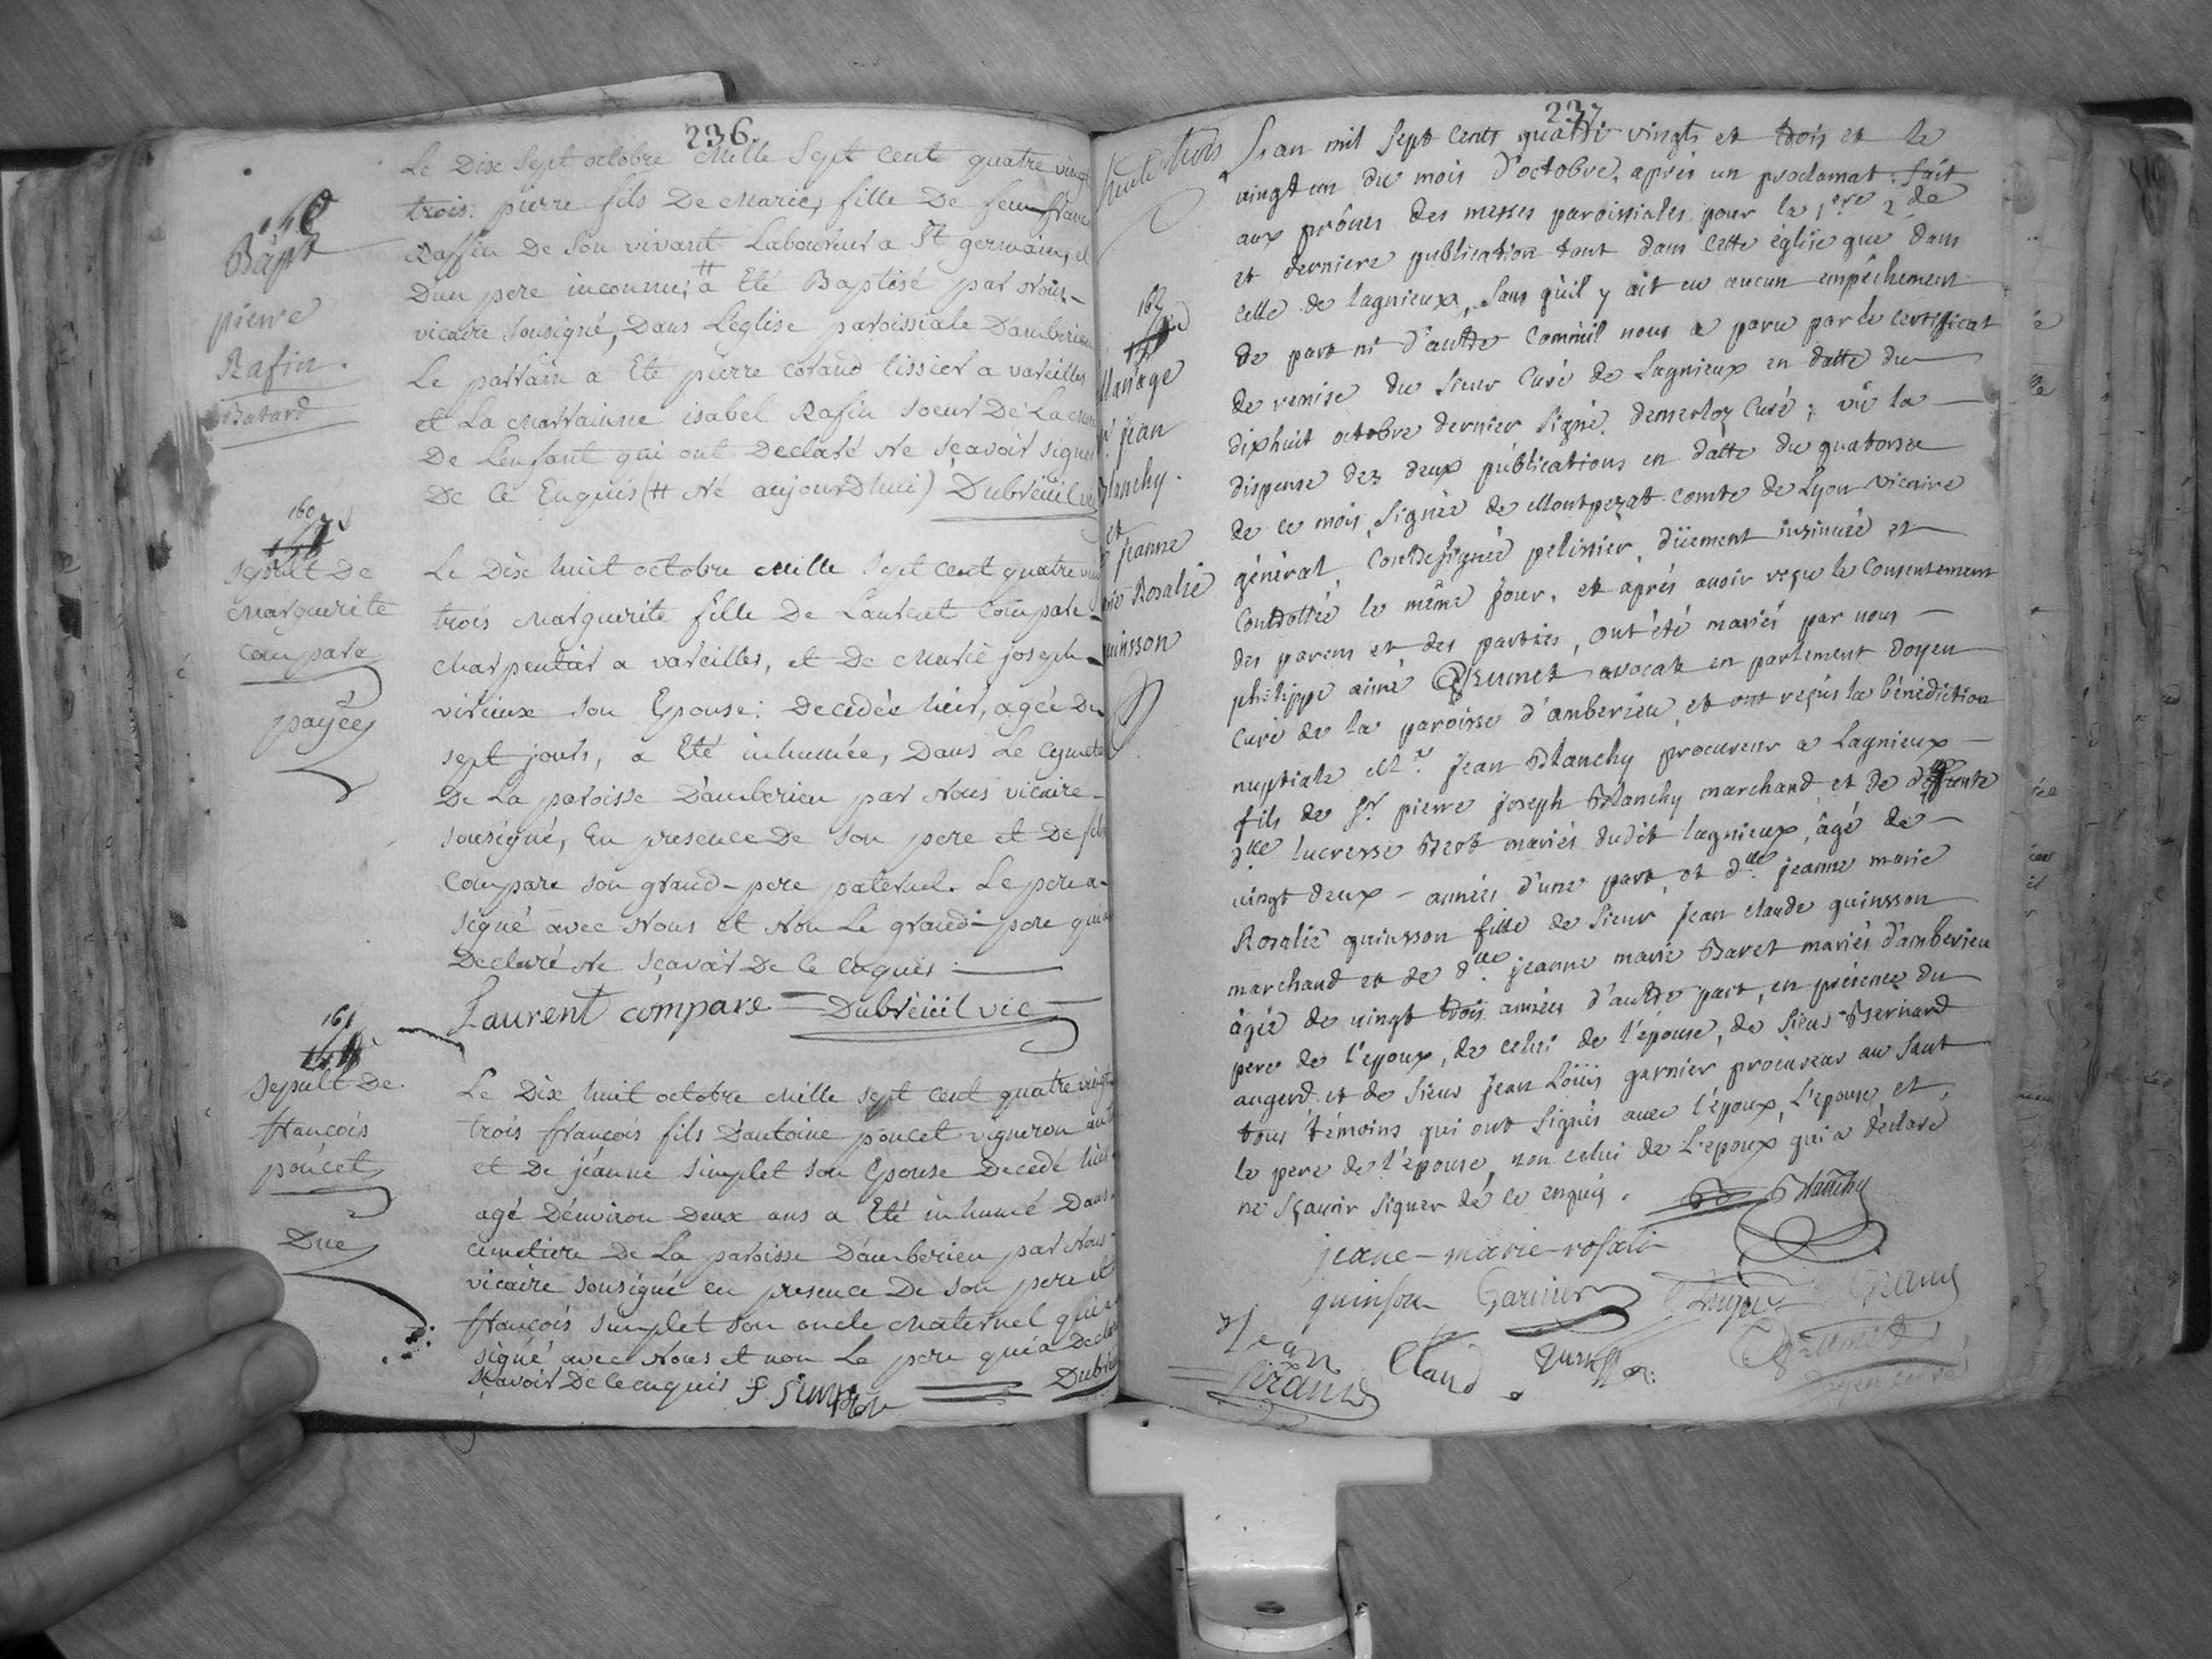 236.
Bapt
pierre
Rafin.
Batard
Le Dix Sept octobre Mille Sept Cent quatre vingt
trois: pierre fils De Marie, fille De feu franc
Raffin De Son vivant Laboureur a St germain, et
Dun pere inconnu; # a Eté Baptisé par Nous
vicaire sousigné, Dans L'eglise paroissiale D'amberieu
Le parrain a Eté pierre Coraud tissier a vareilles
et La Marrainne isabel Rafin soeur De La mere
De L'enfant qui ont Declaré Ne sçavoir signer
De Ce Enquis (# Né aujourDhui) Dubreüil vic
160
Sepult De
Marguerite
Compare
payée
Le Dix huit octobre Mille Sept Cent quatre vingt
trois Marguerite fille De Laurent Compare
charpentier a vareilles, et De Marie joseph
virieux son Epouse: Decedée hier, agée De
sept jours, a Eté inhumée, Dans Le Cymetiere
De La paroisse D'amberieu par Nous vicaire
sousigné, En presence De son pere et De
Compare son grand-pere paternel. Le pere a
signé avec Nous et Non Le grand-pere qui a
Declaré Ne sçavoir De Ce enquis
Laurent compare Dubreüil vic
161
Sepult De
françois
poncet
Due
Le Dix huit octobre Mille Sept Cent quatre vingt
trois françois fils D'antoine poncet vigneron
et De jéanne simplet son Epouse Decedé hier
agé D'environ Deux ans a Eté inhumé Dans
cimetiere De La paroisse D'amberieu par Nous
vicaire sousigné en presence De son pere et
françois simplet son oncle Maternel qui a
signé avec Nous et non Le pere qui a Declaré
sçavoir De Ce enquis
237
162
Mariage
Sr jean
Blanchy
et
jeanne
marie Rosalie
quinsson
L'an mil Sept Cents quatre vingts et trois et le
vingt un du mois d'octobre, aprés un proclamat fait
aux prônes des messes paroissiales pour la 1ere 2de
et derniere publication tant dans Cette église que dans
celle de lagnieux, Sans qu'il y ait eu aucun empêchement
de part ni d'autre Comm'il nous a paru par le certificat
de remise du Sieur Curé de Lagnieux en datte du
dixhuit octobre dernier Signé demerloz Curé; vû la
dispense des deux publications en datte du quatorze
de ce mois, Signée de Montpezat comte de Lyon vicaire
général, Contresignée pelissier, düement insinuée et
Controllée le même jour, et aprés avoir reçu le Consentement
des parens et des parties, ont été mariés par nous
philippe aimé Brunet avocat en parlement doyen
Curé de la paroisse d'amberieu, et ont reçus la bénédiction
nuptiale Mr. Jean Blanchy procureur a Lagnieux
fils de Sr. pierre joseph Blanchy marchand et de deffunte
dlle lucresse Brot mariés dudit lagnieux, âgé de
vingt deux années d'une part, et dlle jeanne marie
Rosalie quinsson fille de Sieur Jean Claude quinsson
marchand et de dlle jeanne marie Baret mariés d'amberieu
âgée de vingt trois années d'autre part, en présence du
pere de l'epoux, de celui de l'épouse, de Sieur Bernard
augerd et de Sieur Jean Loüis garnier procureur au Saut
tous témoins qui ont Signés avec l'époux, L'epouse et
le pere de l'épouse, non celui de L'epoux qui a déclaré
ne Sçavoir Signer de ce enquis.
Blanchy
jeane-marie-rosali
quinson Garnier
Jean Claud quinsson